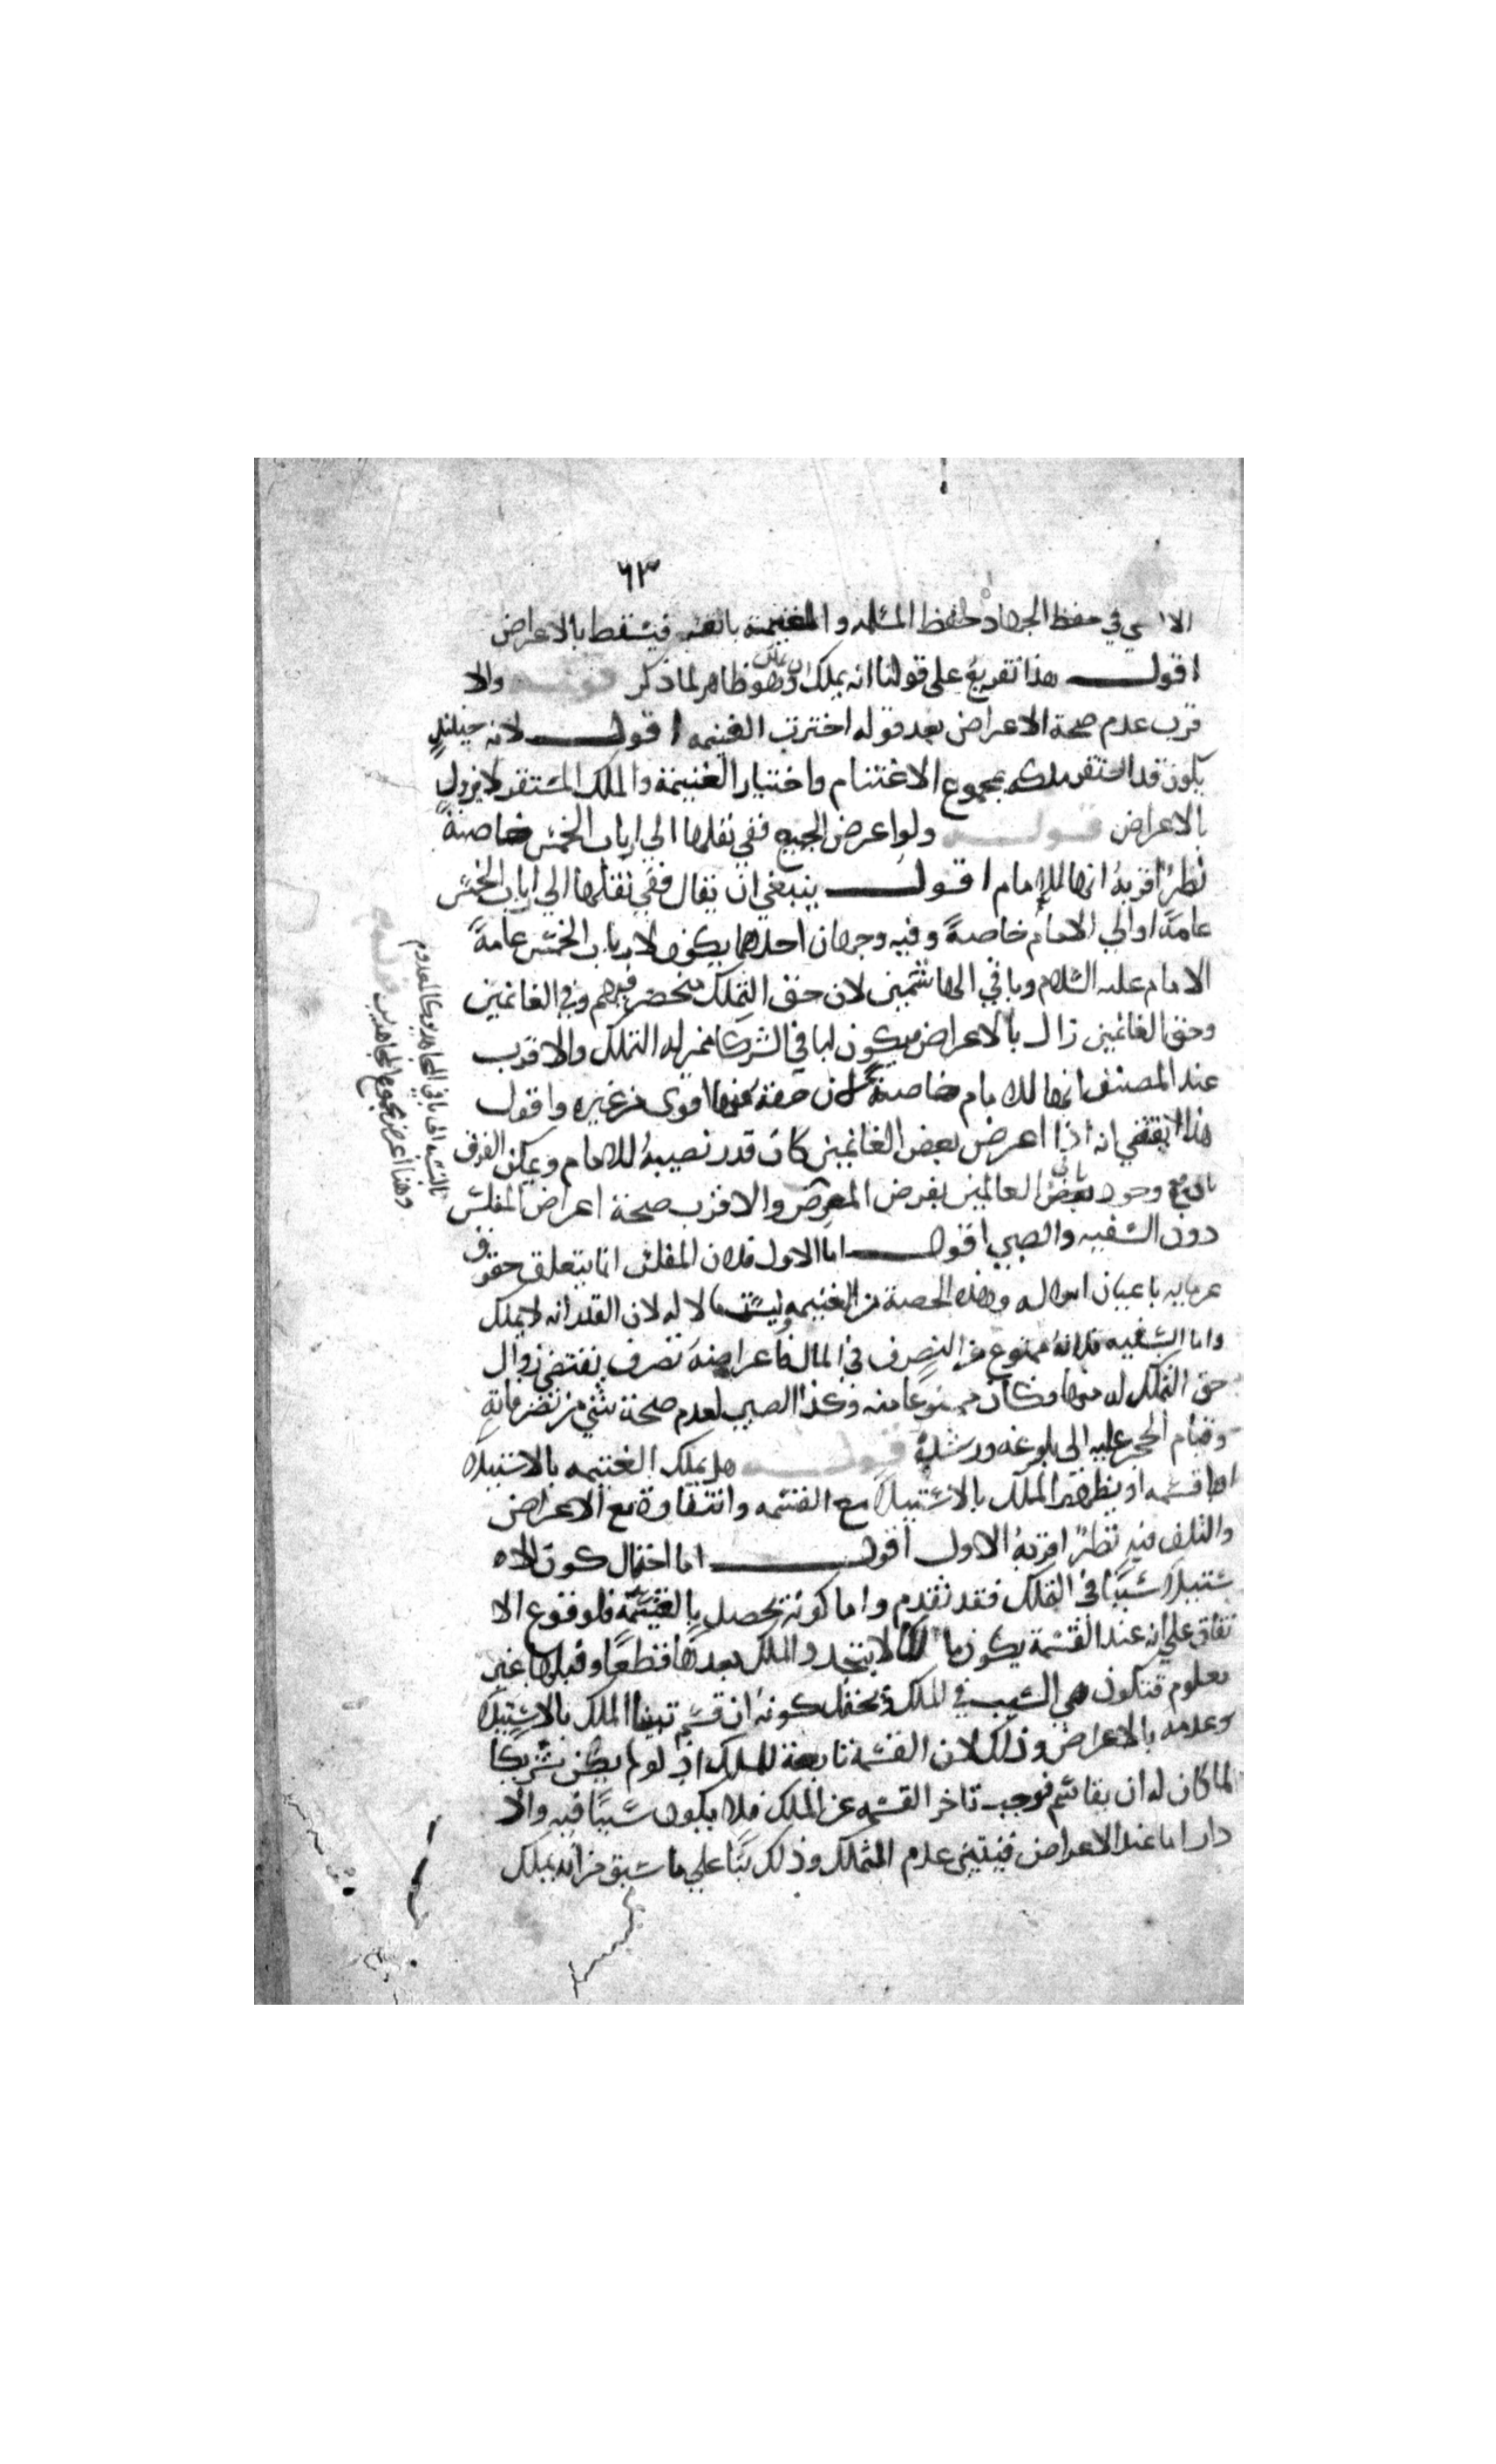 ٦٣
في حفظ الجهاد حفظ المسلمة والغنيمة تابعة فيسقط بالاعراض
اقول هذا تفريع على قولنا انه يملك ان يملك وهو ظاهر لما ذكر قوله والا
قرب عدم صحة الاعراض بعد قوله اخترت الغنيمه اقول لانه حينئذٍ
يكون قد استقر ملكه بمجموع الاغتنام واختيار الغنيمة والملك المستقر لا يزول
بالاعراض قوله ولو اعرض الجميع ففي نقلها الي ارباب الخمس خاصةً
نظرٌ اقربهُ انها للامام اقول ينبغي ان يقال ففي نقلها الي ارباب الخمس
عامةً اوالي الامام خاصةً وفيه وجهان احدهما يكون لارباب الخمس عامةً
الامام عليه السلام وباقي الهاشميين لان حق التملك منحصر فيهم وفي الغانمين
وحق الغانمين زال بالاعراض فيكون لباقي الشركا فمن له التملك والاقرب
عند المصنف انها للامام خاصةً لان حقه فيها اقوى من غيره واقول
هذا يقتضي انه اذا اعرض بعض الغانمين كان قدر نصيبهُ للامام ويمكن الفرق
بان مع وجود باقي الغانمين يفرض المعرض
بالنسبه الى باقي المجاهدين كالمعدوم
وهنا اعرض مجموع المجاهدين قوله
والاقرب صحة اعراض المفلس
دون السفيه والصبي اقول اما الاول فلان المفلس انما يتعلق حقوق
غرمايه باعيان امواله وهذه الحصة من الغنيمه وليست مالا له لان القدر انه لا يملك
واما السفيه فلانهُ ممنوع من التصرف في المال فاعراضهُ تصرف يقتضي زوال
حق التملك له منها وكان ممنوعًا منه وكذا الصبي لعدم صحة شئ من تصرفاته
وقيام الحجر عليه الى بلوغه ورشدهُ قوله هل يملك الغنيمه بالاستيلا
او القسمه او يظهر الملك بالاستيلا مع القسمه وانتفاوهُ مع الاعراض
والتلف فيه نظرٌ اقربهُ الاول اقول اما احتمال كون الا
ستيلا سببًا في التملك فقد تقدم واما كونهُ يحصل بالقسمة فلوقوع الا
تفاق على انه عند القسمة يكون مالكا لا يتجدد الملك بعدها قطعًا وقبلها غير
معلوم فتكون هي السبب في الملك ويحتمل كونهُ ان قسم تبينا الملك بالاستيلا
وعدمه بالاعراض وذلك لان القسمة تابعة للملك اذ لو لم يكن شريكًا
لما كان له ان يقاسم فوجب تاخر القسمه عن الملك فلا يكون سببًا فيه والا
دار اما عند الاعراض فيتبين عدم التملك وذلك بنًا علي ما سبق من انه يملك